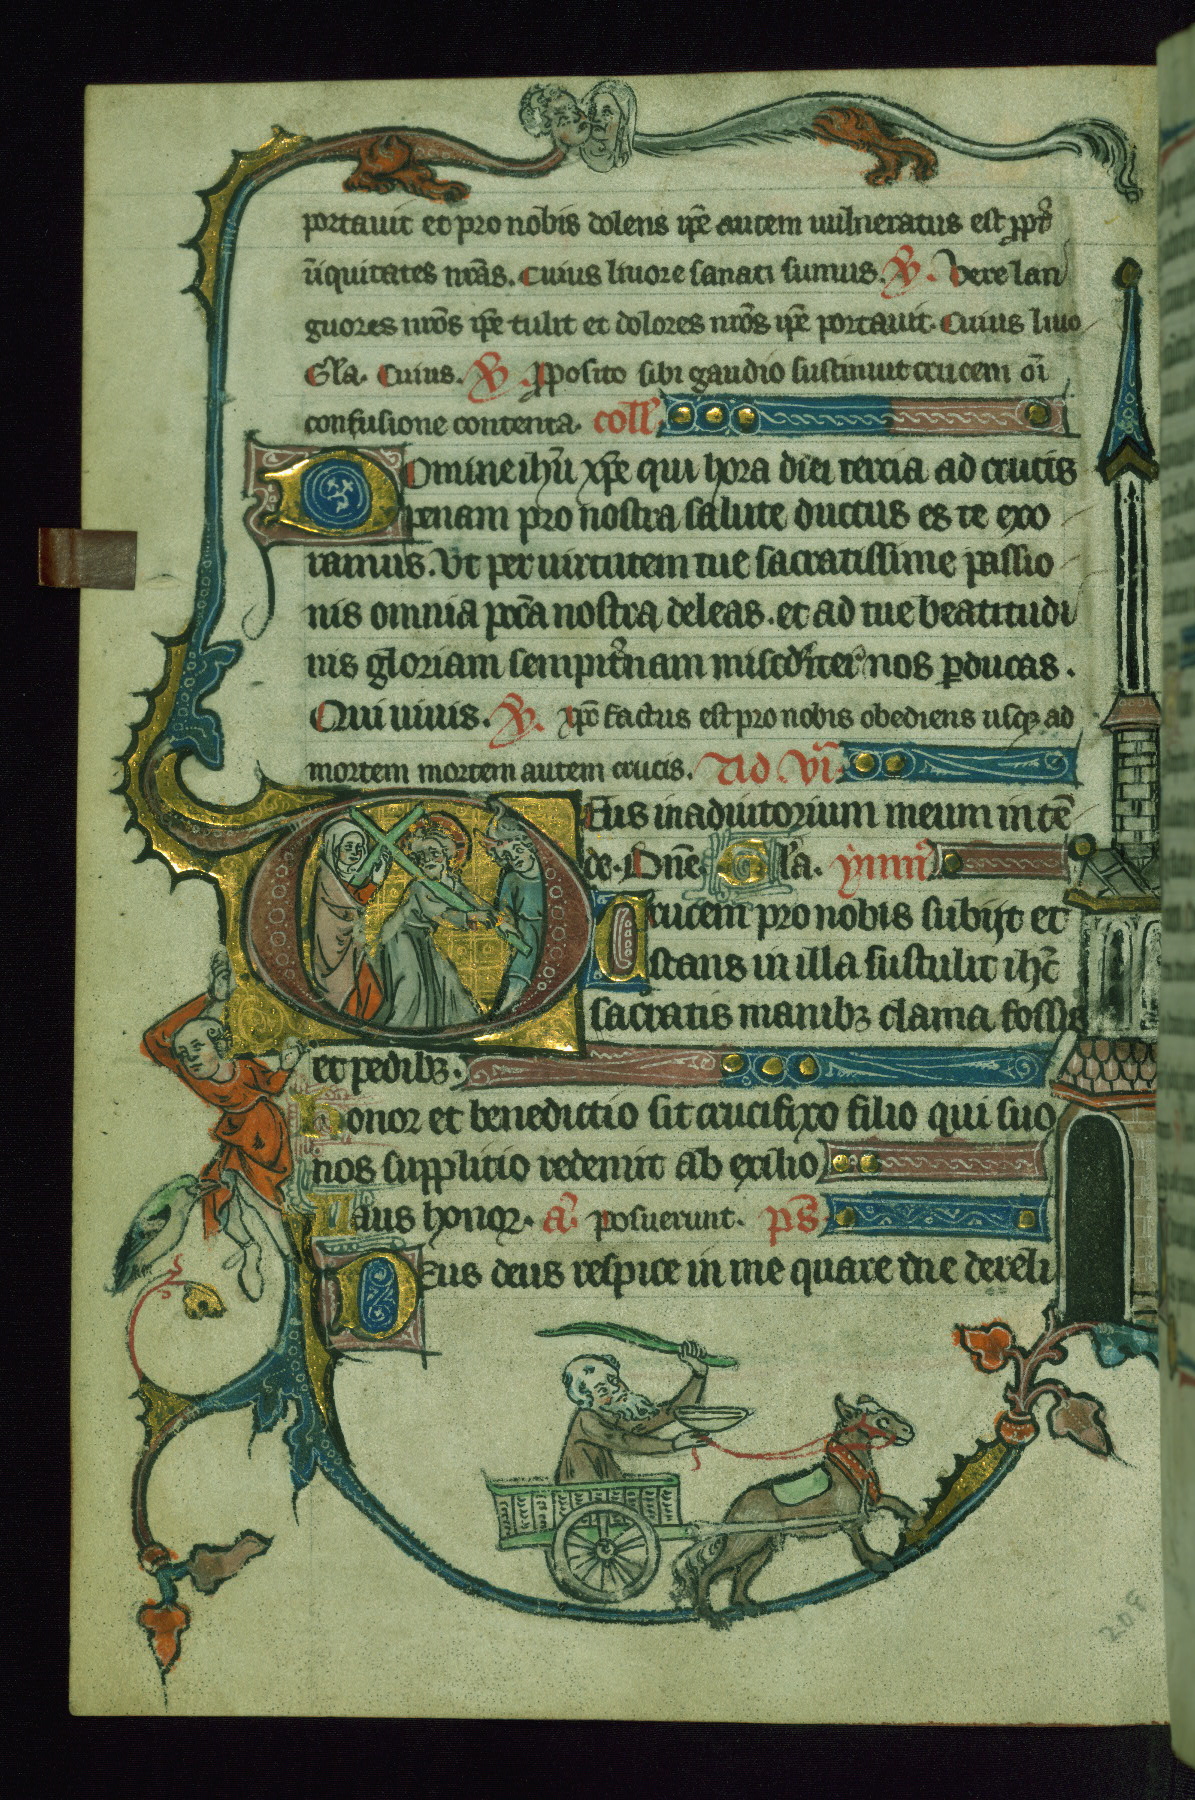 portauit et pro nobis dolens ip̄e autem uulneratus est ꝓpt̄
iīquitates nr̄as. Cuius liuore sanati sumus. ℣. Vere lan
guores nr̄os ip̄e tulit et dolores nr̄os ip̄e portauit. Cuius liuo
Gl̄a. Cuius. ℣. Proposito sibi gaudio sustinuit crucem
confusione contenta. coll̄
Domine ihū xp̄e qui hora diei tercia ad crucis
penam pro nostra salute ductus es te exo
ramus. Vt per uirtutem tue sacratissime passio
nis omnia pc̄ca nostra deleas. et ad tue beatitudi
nis gloriam sempit̄nam nos ꝑducas.
Qui uiuis. ℣. xp̄c factus est pro nobis obediens usqꝫ ad
mortem mortem autem crucis. Ad vi
Deus in adiutorium meum intē
de. Dn̄e. Gl̄a. ympn̄
Crucem pro nobis subijt et
stans in illa sustulit ihc̄
sacratis manibꝫ clauia fossis
et pedibꝫ.
honor et benedictio sit crucifixo filio qui suo
nos supplitio redemit ab exilio
Laus honor. a. Posuerunt. ps̄
Deus deus respice in me quare me dereli
208